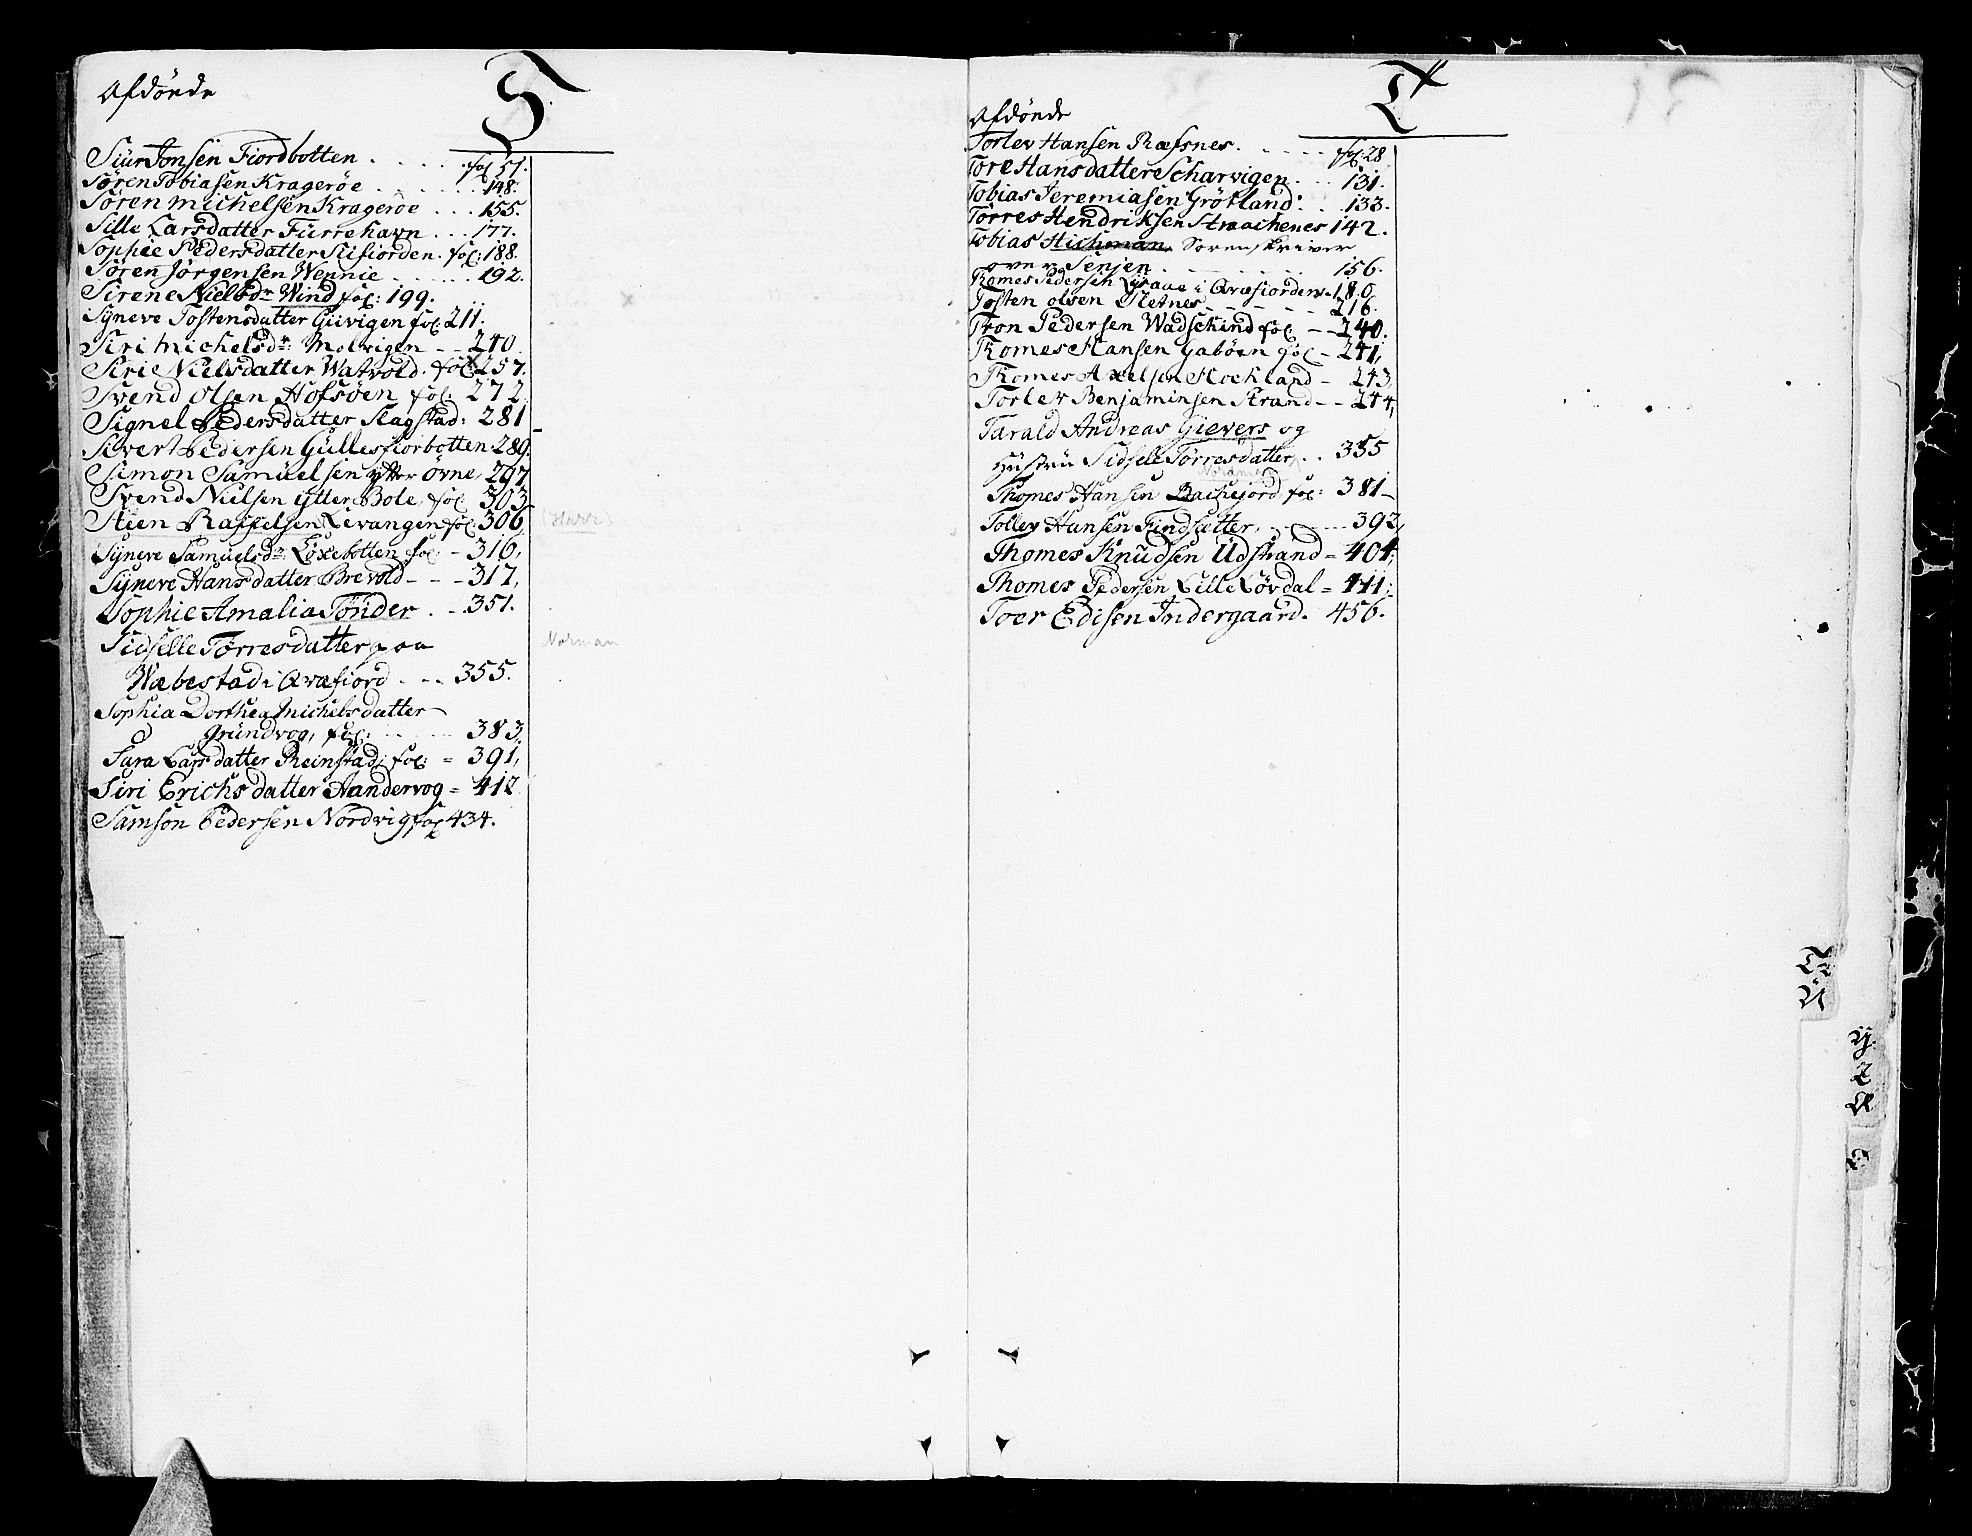 Afdönde
S
Siur Jonsen Fiordbotten . . . . . fol 51.
Sören Tobiasen Kragerøe . . . . . 148.
Sören Michelsen Kragerøe . . . 155.
Sille Larsdatter Furrehavn . . . 177.
Sophie Pedersdatter Slifiorden. fol: 188.
Søren Jörgensen Wennie . . . . . 192.
Sirene Nielsdr Wind fol: 199.
Syneve Tostensdatter Giivigen fol 211.
Siri Michelsdr: Molvigen - - 240.
Siri Nielsdatter Watvold. fol 257.
Svend Olsen Hofsöen fol: 272
Signel Pedersdatter Slagstad: 281
Sivert Pedersen Gullesfiorbotten. 289.
Simon Samuelsen ytter Övne, 297
Svend Nielsen ytter Bole, fol: 303
Steen Raffelsen Levangen fol: 306 (Havr)
Syneve Samuelsdr Löxebotten fol: - 316,
Syneve Hansdatter Brevold - - - 317,
Sophie Amalia Tönder . . - 351.
Sidselle Tørresdatter paa Norman
Wæbestad i Qvæfiord . . . . 355.
Sophia Dorthea Michelsdatter
Grundvog, fol: . . . . . . 383.
Sara Larsdatter Reinstad, fol: = 391,
Siri Erichsdatter Handervog = 412
Samson Pedersen Nordvig fol 434.
T
Afdönde
Torlev Hansen Ræfsnes . . . . . fol: 28
Tore Hansdatter Scharvigen . . . 131.
Tobias Jeremiasen Grötland . . . 133.
Tørres Hendriksen Straachenes 142.
Tobias Stichman, Sorenskriver
over Senjen . . . . . . . 156.
Thomes Pedersen i Qvæfiorden - 180,
Tosten Olsen Sletnes - - - - - - 216.
Tron Pedersen Wadschind fol - - 240.
Thomes Hansen Gaböen fol - 241,
Thomes Axelsen Stockland - 243,
Torlev Benjaminsen Strand - - 244,
Tarald Andreas Gievers og
Hustrü Sidsele Tørresdatter . . . 355
Norman
Thomes Hansen Bachejord fol: 381 -
Tollev Hansen Findsætter, - - - - 392,
Thomes Knudsen Udstrand = 404,
Thomes Pedersen Lille Lövdal = 411,
Toer Edisen Indergaard. 456.